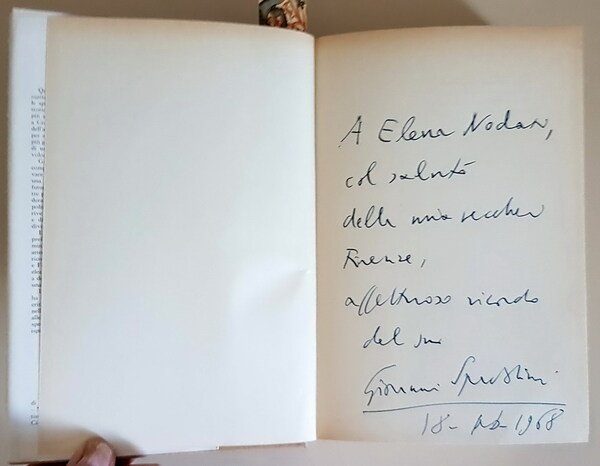 A Elena Nodari,
col saluto
della mia vecchia
Firenze,
affettuoso ricordo
del suo
Giovanni Spadolini
18- 1968